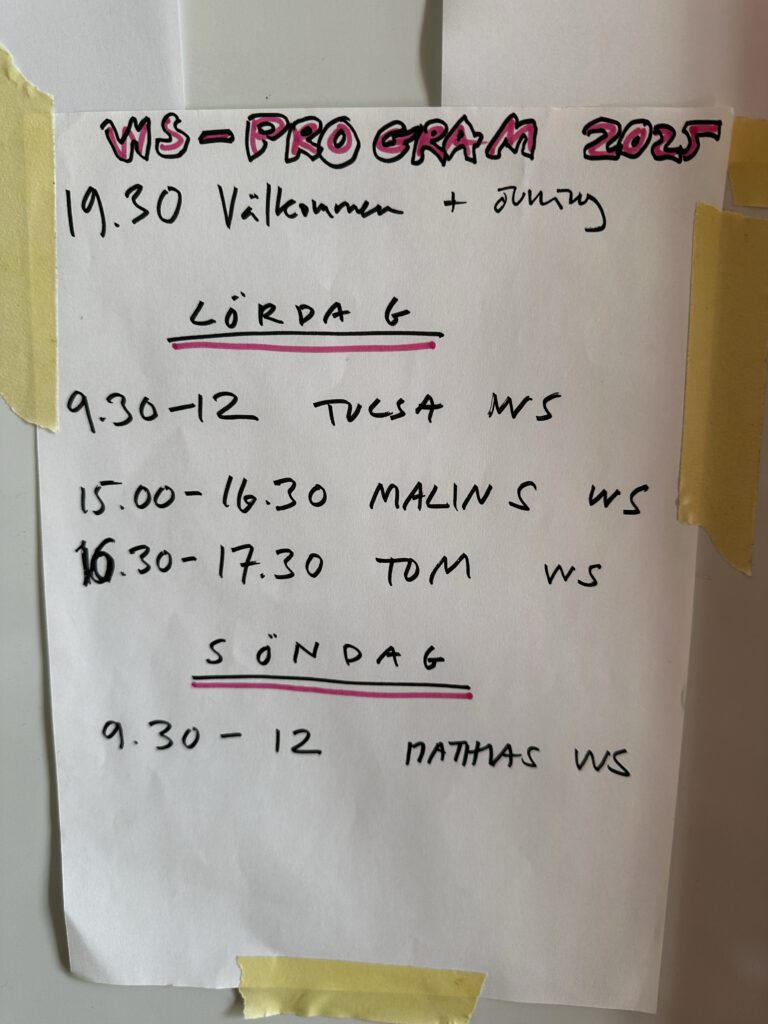 WS-PROGRAM 2025
19.30 Välkommen + övning
LÖRDAG
9.30-12 TULSA WS
15.00-16.30 MALINS WS
16.30-17.30 TOM WS
SÖNDAG
9.30-12 MATHIAS WS